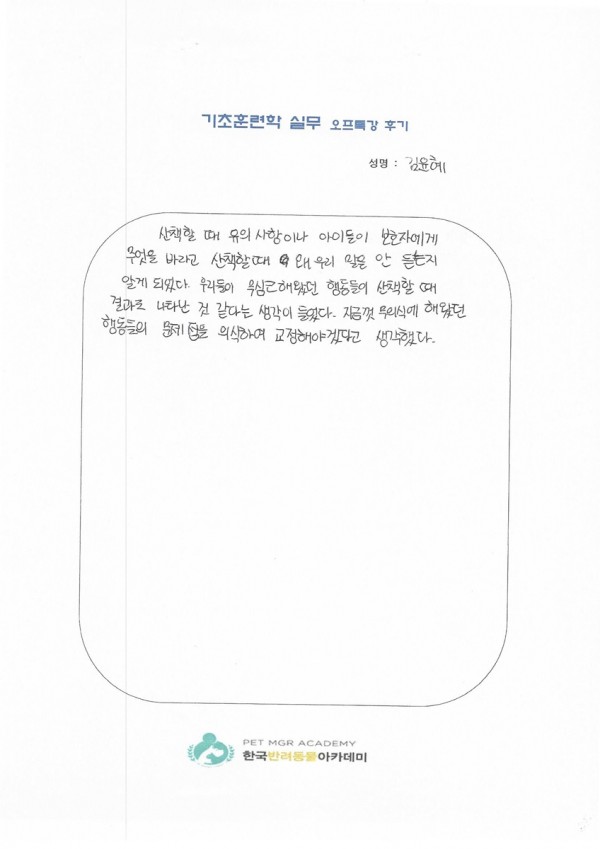 기초훈련학 실무 오프특강 후기
성명 : 김윤혜
산책할 때 유의사항이나 아이들이 보호자에게
무엇을 바라고 산책할때 왜 우리 말을 안 듣는지
알게 되었다. 우리들이 무심코해왔던 행동들이 산책할 때
결과로 나타난 것 같다는 생각이 들었다. 지금껏 무의식에 해왔던
행동들의 문제점을 의식하여 교정해야겠다고 생각했다.
PET MGR ACADEMY
한국반려동물아카데미